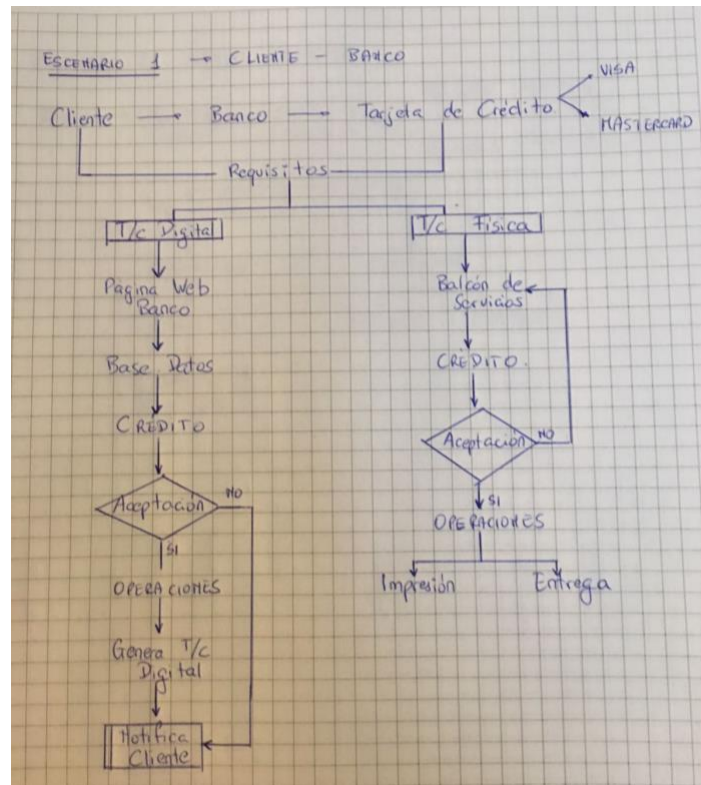 ESCENARIO 1 → CLIENTE - BANCO
Cliente → Banco → Tarjeta de Crédito
VISA
MASTERCARD
Requisitos
T/c Digital
Página Web
Banco
Base Datos
CRÉDITO
Aceptación
NO
SI
OPERACIONES
Genera T/c
Digital
Notifica
Cliente
T/c Física
Balcón de
Servicios
CRÉDITO.
Aceptación
NO
SI
OPERACIONES
Impresión
Entrega